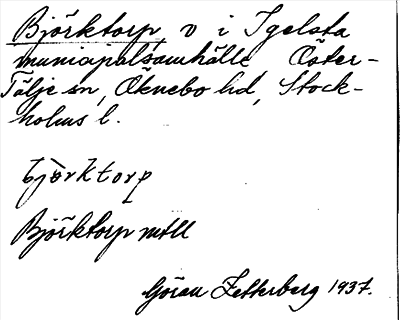 Björktorp, v i Igelsta
municipalsamhälle Öster-
Tälje sn, Öknebo hd, Stock-
holms l.
björktorp
Björktorp mtll
Göran Zetterberg 1937.